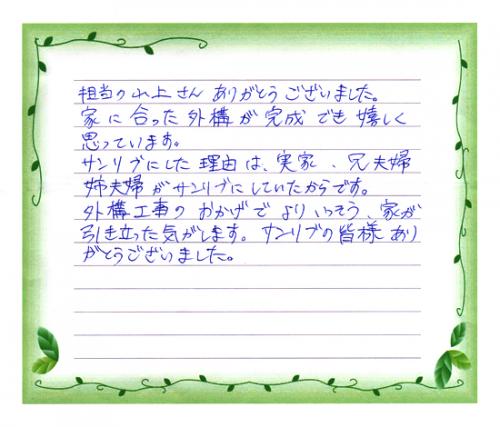 担当の山上さん ありがとうございました。
家に合った外構が完成でき嬉しく
思っています。
サンリブにした理由は、実家、兄夫婦
姉夫婦がサンリブにしていたからです。
外構工事のおかげでよりいっそう、家が
引き立った気がします。サンリブの皆様あり
がとうございました。